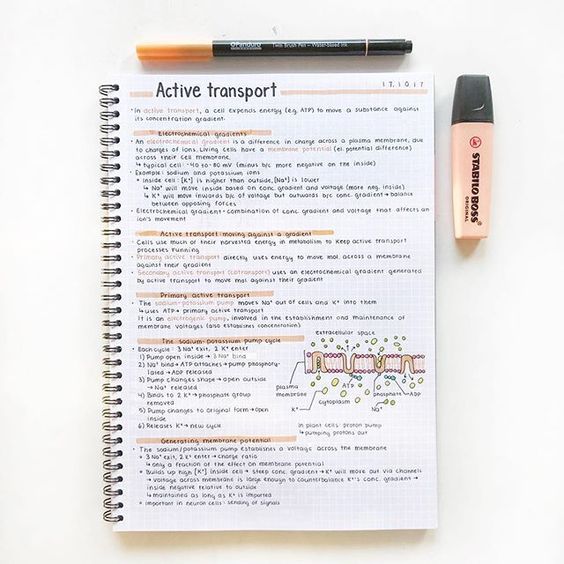 OPanduro
Twin Brush Pen - Water-based ink
Active transport
17.10.17
• In active transport, a cell expends energy (e.g. ATP) to move a substance against
its concentration gradient.
Electrochemical gradients
• An electrochemical gradient is a difference in charge across a plasma membrane, due
to charges of ions. Living cells have a membrane potential (el. potential difference)
across their cell membrane.
↳ typical cell: -40 to -80 mV (minus b/c more negative on the inside)
• Example: sodium and potassium ions
* Inside cell: [K⁺] is higher than outside, [Na⁺] is lower
↳ Na⁺ will move inside based on conc. gradient and voltage (more neg. inside)
↳ K⁺ will move inwards b/c of voltage but outwards b/c conc. gradient → balance
between opposing forces
• Electrochemical gradient = combination of conc. gradient and voltage that affects an
ion's movement
Active transport: moving against a gradient
• Cells use much of their harvested energy in metabolism to keep active transport
processes running
• Primary active transport directly uses energy to move mol. across a membrane
against their gradient
• Secondary active transport (cotransport) uses an electrochemical gradient generated
by active transport to move mol. against their gradient
Primary active transport
• The sodium-potassium pump moves Na⁺ out of cells and K⁺ into them
↳ uses ATP → primary active transport
It is an electrogenic pump, involved in the establishment and maintenance of
membrane voltages (also establishes concentration)
The sodium-potassium pump cycle
Each cycle: 3 Na⁺ exit, 2 K⁺ enter
1) Pump open inside → 3 Na⁺ bind
2) Na⁺ bind → ATP attaches → pump phosphory-
lated → ADP released
3) Pump changes shape → open outside
→ Na⁺ released
4) Binds to 2 K⁺ → phosphate group
removed
5) Pump changes to original form → open
inside
6) Releases K⁺ → new cycle
extracellular space
plasma
membrane
K⁺
cytoplasm
ATP
Na⁺
phosphate
ADP
In plant cells: proton pump
↳ pumping protons out
Generating membrane potential
• The sodium/potassium pump establishes a voltage across the membrane
* 3 Na⁺ exit, 2 K⁺ enter → charge ratio
↳ only a fraction of the effect on membrane potential
* Builds up high [K⁺] inside cell → steep conc. gradient → K⁺ will move out via channels
→ voltage across membrane is large enough to counterbalance K⁺'s conc. gradient →
inside negative relative to outside
↳ maintained as long as K⁺ is imported
* Important in neuron cells: sending of signals
STABILO BOSS
ORIGINAL